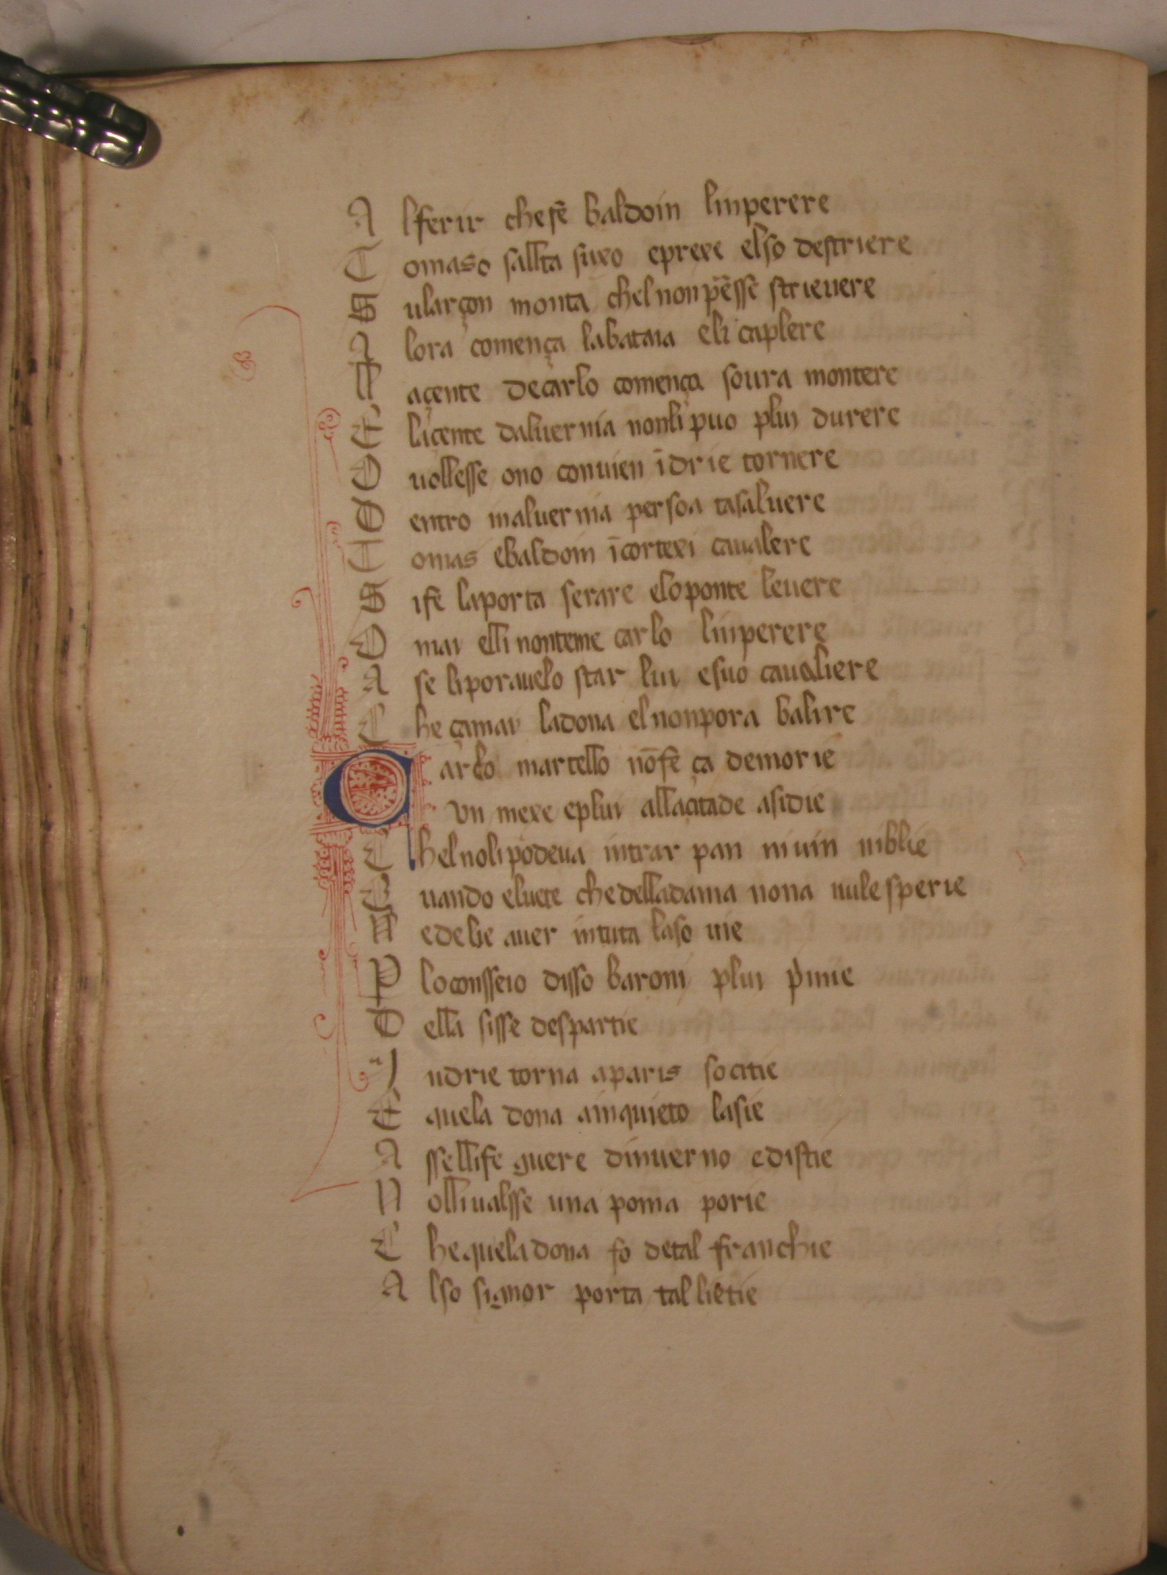 A lferir che fē baldoin linperere
T omaso sallta suxo e prexe elso destriere
S ularçon monta chel non pēsse strieuere
A lora comença la bataia eli caplere
M açente de carlo comença soura montere
E liçente daluernia nonli puo plui durere
O uollesse ono conuien īdrie tornere
D entro inaluernia per soa ta saluere
T omas e baldoin ī cortexi caualere
S i fē la porta serare e lo ponte leuere
O mai elli non teme carlo linperere
A se li pora uelo star lui e suo caualiere
C he çamai la dona el non pora balire
C arlo martello nō fe ça demorie
Un mexe e plui alla çitade asidie
C hel no li podeua intrar pan ni uin ni blie
Q uando el uete che della dama nona nule sperie
N e de lie auer in tuta la so uie
P lo consseio disso baroni plui p̄rie
D ella si sse despartie
I ndrie torna a paris so citie
E quela dona a inquieto lasie
A sse lli fe guere dinuerno e distie
N olli ualsse una poma porie
C he quela dona fo de tal franchie
A lso signor porta tal lietie